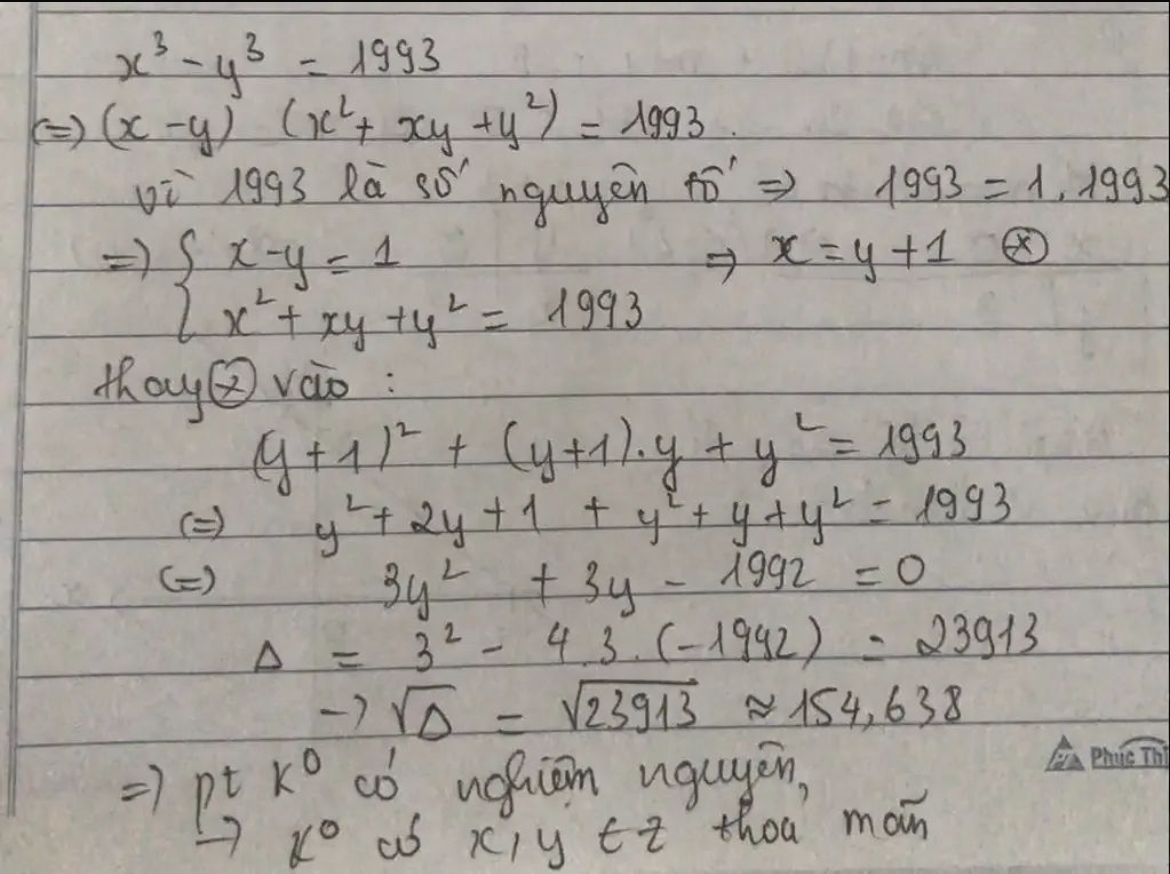 x³ - y³ = 1993
(=) (x - y) (x² + xy + y²) = 1993.
vì 1993 là số nguyên tố => 1993 = 1.1993
=> { x - y = 1 => x = y + 1 ⊛
x² + xy + y² = 1993
thay ⊛ vào :
(y + 1)² + (y + 1).y + y² = 1993
(=) y² + 2y + 1 + y² + y + y² = 1993
(=) 3y² + 3y - 1992 = 0
Δ = 3² - 4.3.(-1992) = 23913
-> √Δ = √23913 ≈ 154,638
=> pt k⁰ có nghiệm nguyên,
-> k⁰ có x, y ∈ Z thoả mãn
Phúc Thi